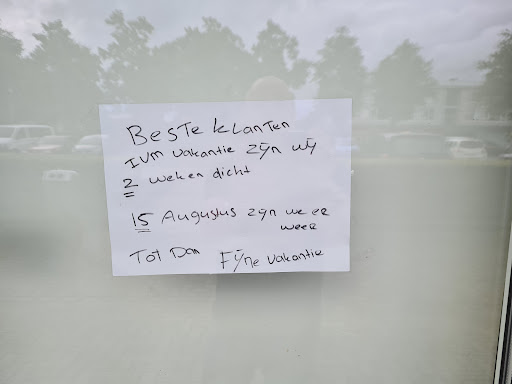 Beste klanten
IVM vakantie zijn wij
2 weken dicht
15 Augustus zijn we er
weer
Tot Dan Fijne vakantie